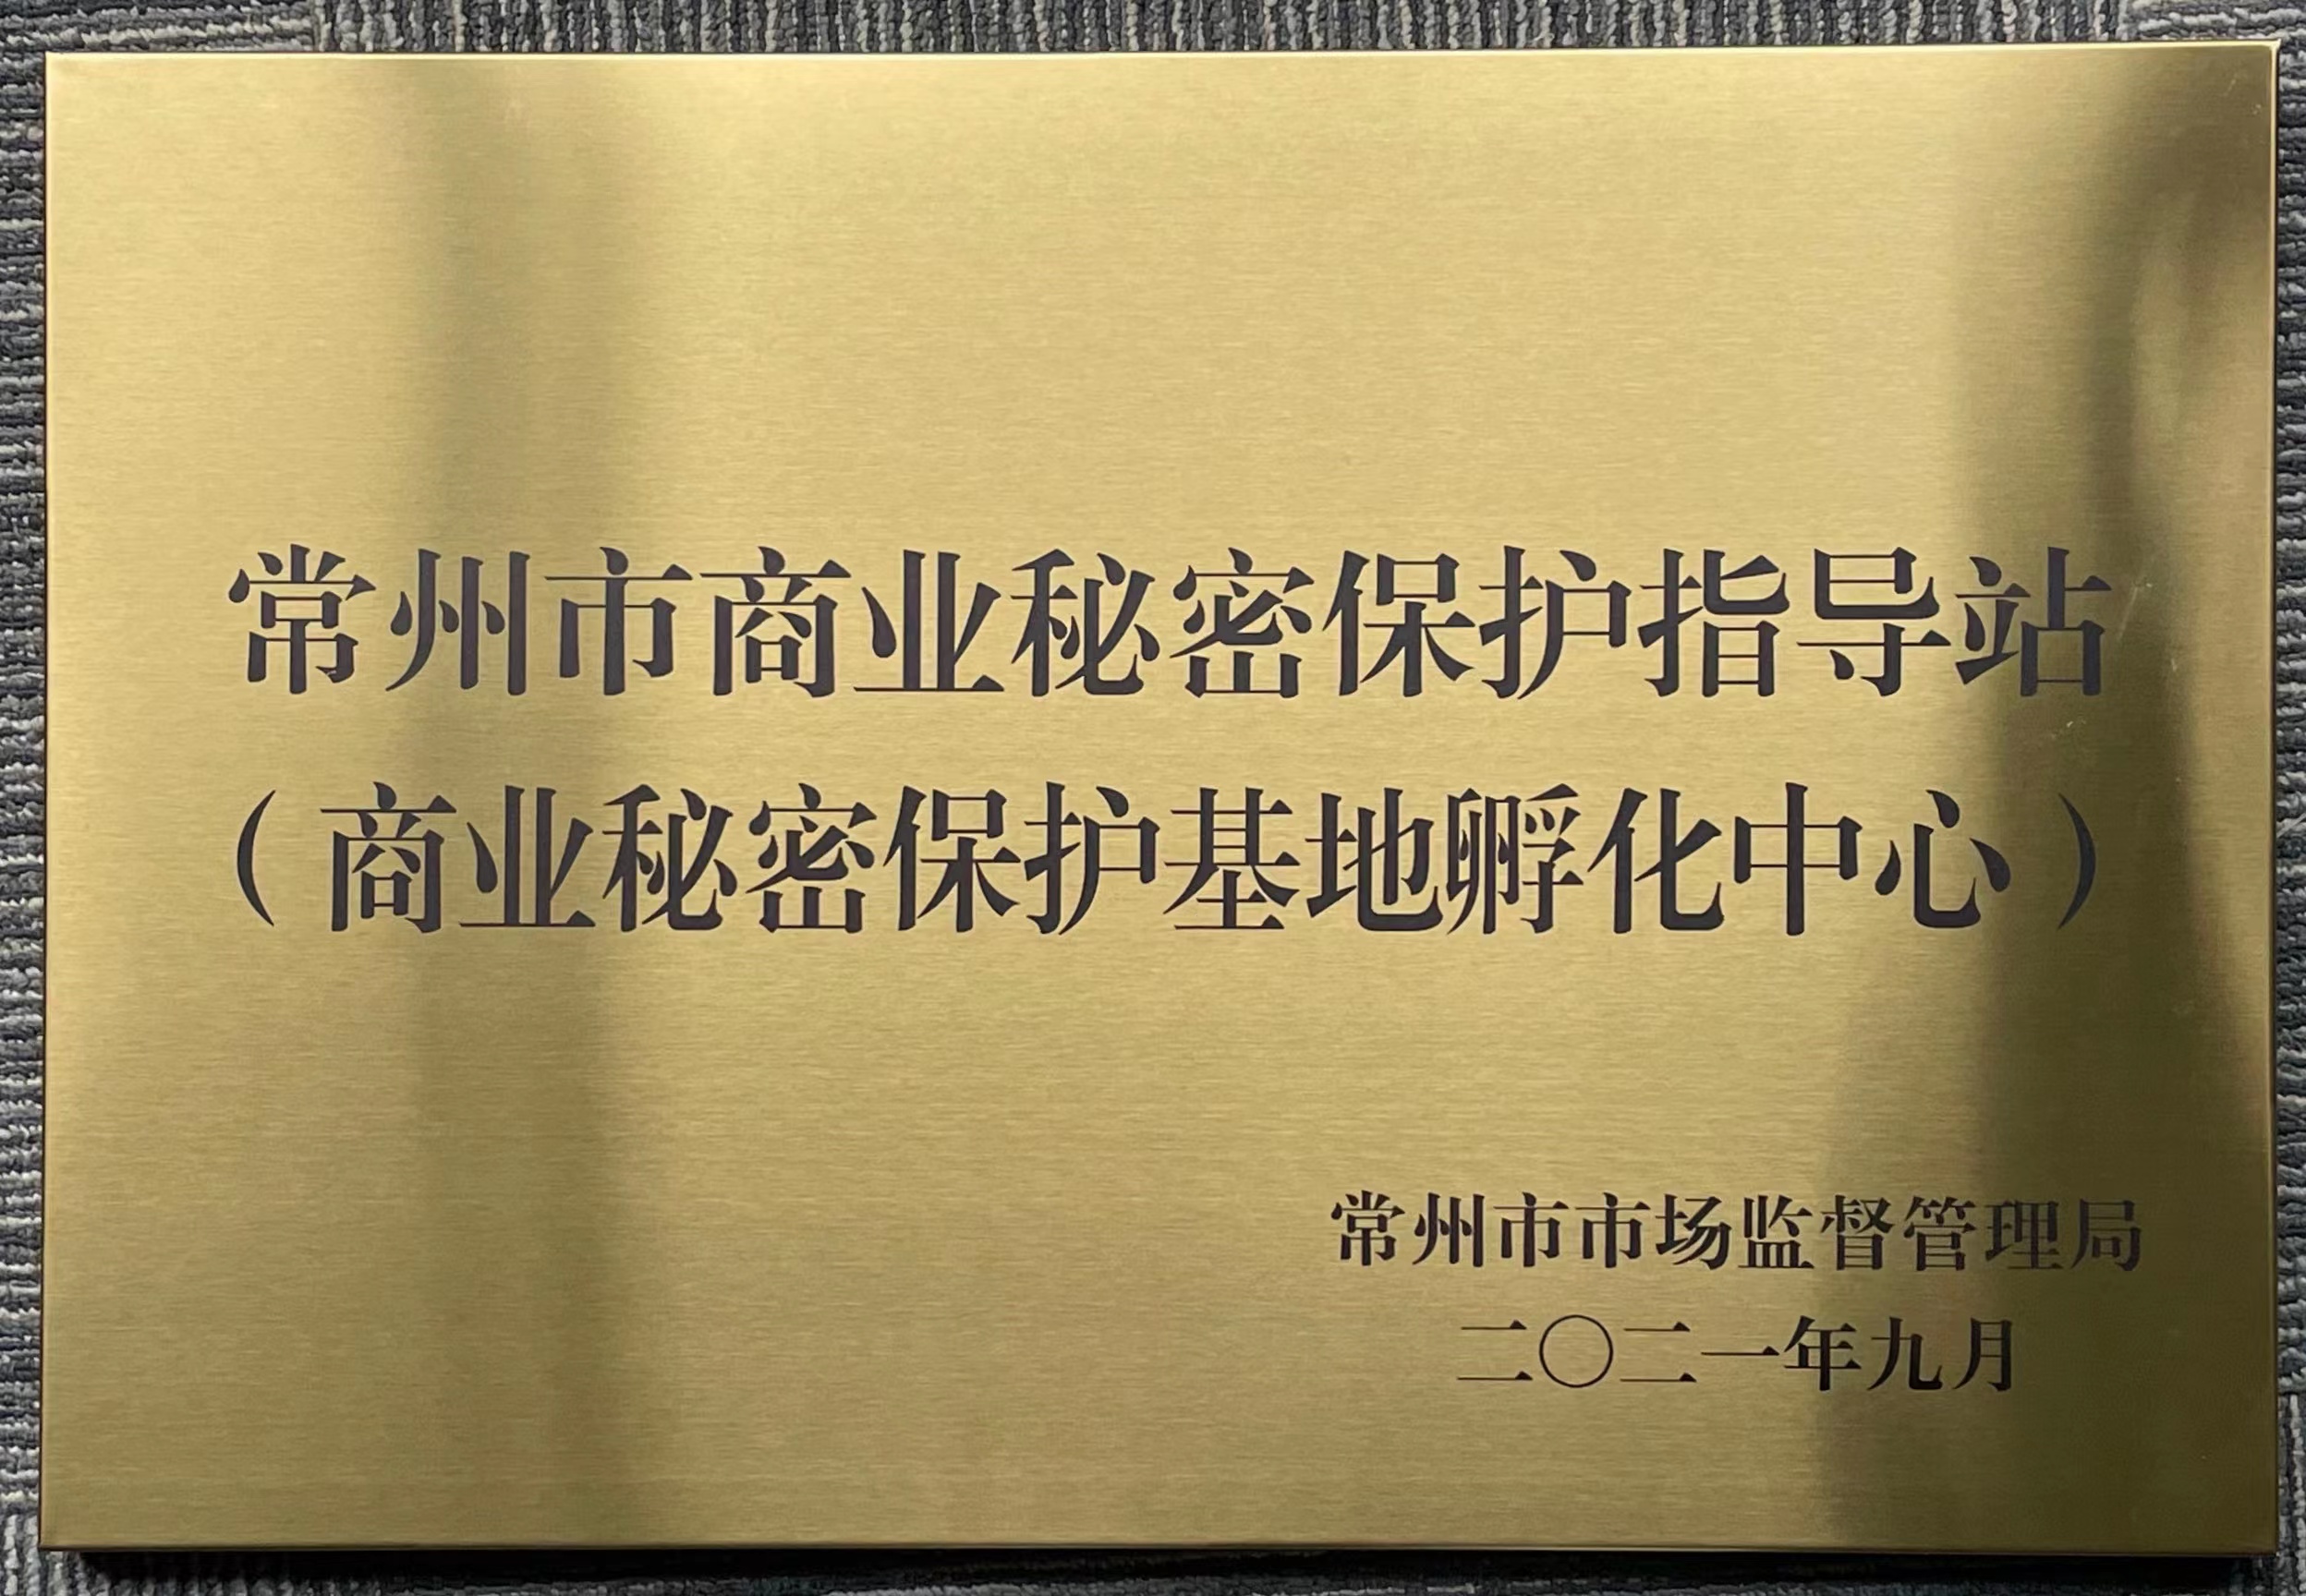 常州市商业秘密保护指导站
（商业秘密保护基地孵化中心）
常州市市场监督管理局
二〇二一年九月